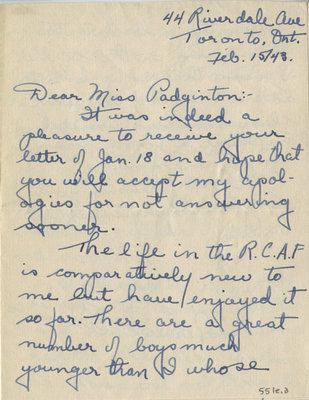 44 Riverdale Ave
Toronto, Ont.
Feb. 15/43.
Dear Miss Padginton:-
It was indeed a
pleasure to receive your
letter of Jan. 18 and hope that
you will accept my apol-
ogies for not answering
sooner.
The life in the R.C.A.F
is comparatively new to
me but have enjoyed it
so far. There are a great
number of boys much
younger than I whose
551e.a